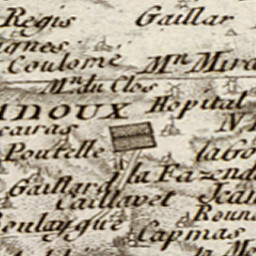 Regis Gaillar
ignes
Coulome Mn Mira
Mn du Clos
ADOUX Hopital
cairas N
Poutelle lagо
la Fazend
Gaillard Jean
Caillavet Roun
Boulaygue Capmas